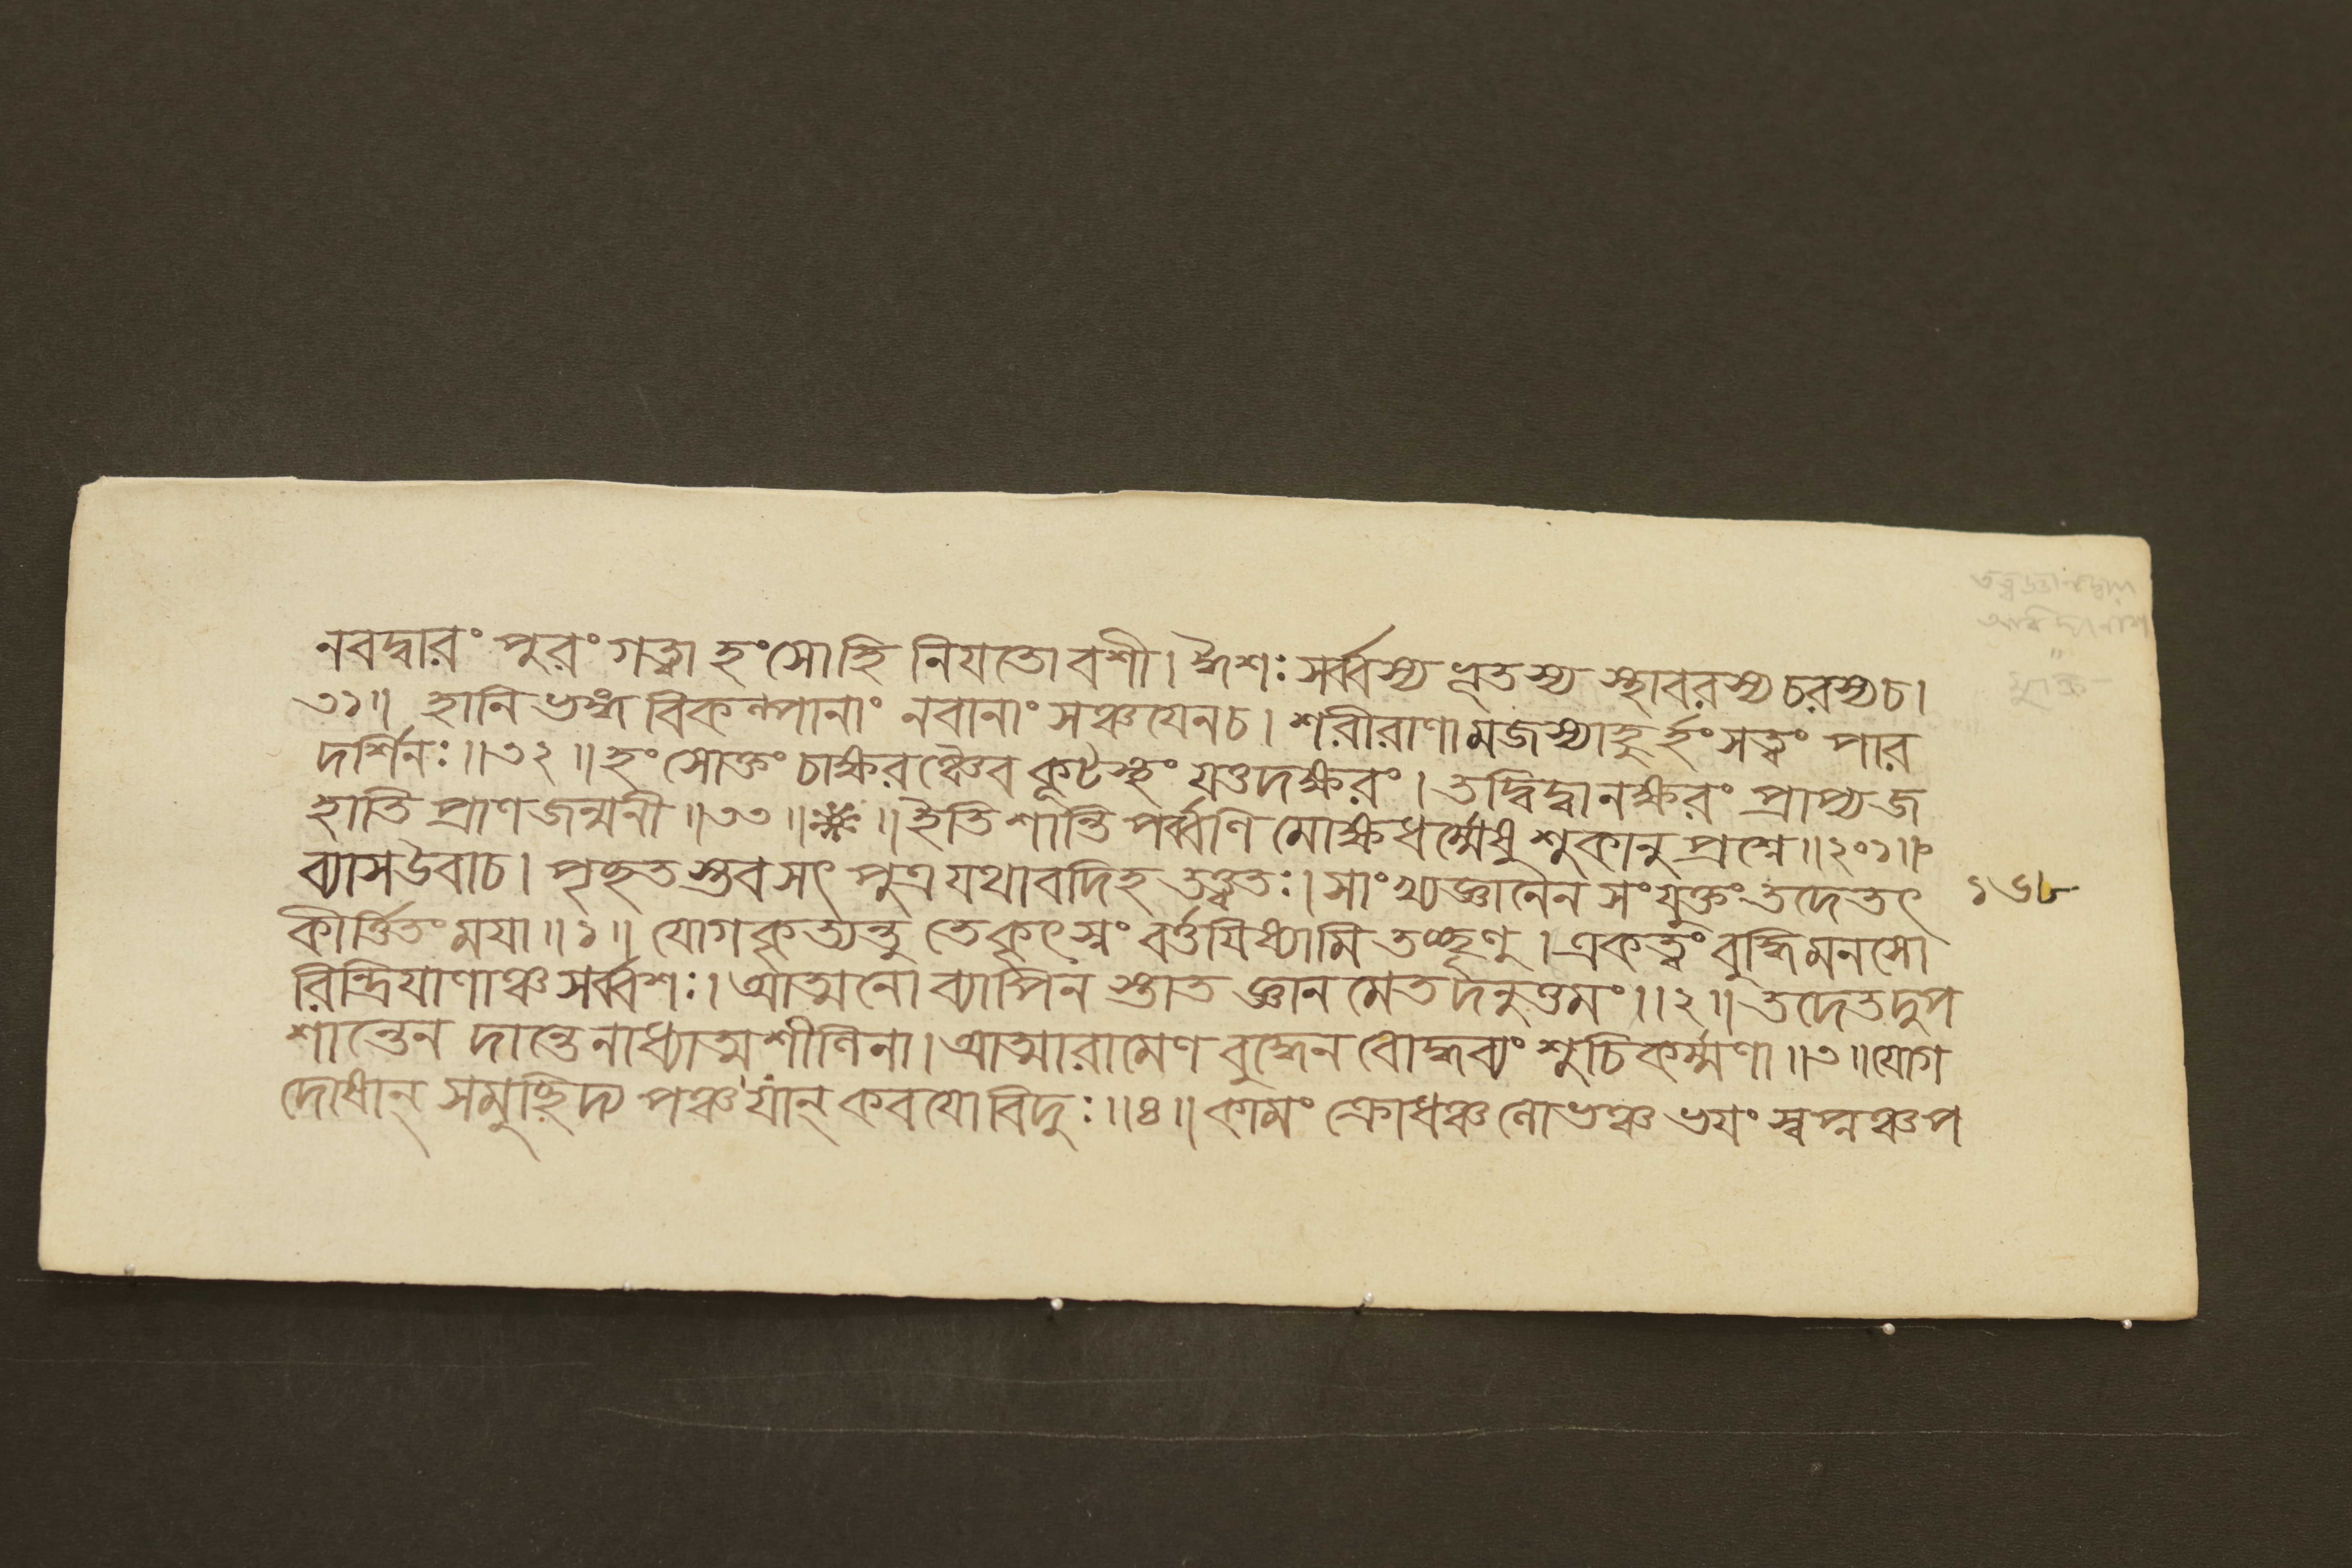 নবদ্বারং পুরং গত্বা হংসো হি নিযতো বশী। ঈশঃ সর্ব্বস্য ভূতস্য স্থাবরস্য চরস্য চ।
৩১॥ হানিভঙ্গ বিকল্পানাং নবানাং সঞ্চযেন চ। শরীরাণামজস্যাহু র্হংসত্বং পার
দর্শিনঃ॥৩২॥ হংসোক্তং চাক্ষরঞ্চৈব কূটস্থং যত্তদক্ষরং। তদ্বিদ্বানক্ষরং প্রাপ্য জ
হাতি প্রাণজন্মনী॥৩৩॥※॥ ইতি শান্তিপর্ব্বণি মোক্ষধর্ম্মেষু শুকানুপ্রশ্নে॥২০১॥
ব্যাসউবাচ। পৃচ্ছতস্তব সৎ পুত্র যথাবদিহ তত্ত্বতঃ। সাংখ্যজ্ঞানেন সংযুক্তং তদেতৎ
কীর্ত্তিতং মযা॥১॥ যোগকৃত্যন্তু তে কৃৎস্নং বর্ত্তযিষ্যামি তচ্ছৃণু। একত্বং বুদ্ধিমনসো
রিন্দ্রিযাণাঞ্চ সর্ব্বশঃ। আত্মনো ব্যাপিনস্তাত জ্ঞানমেতদনুত্তমং॥২॥ তদেতদুপ
শান্তেন দান্তেনাধ্যাত্মশীলিনা। আত্মারামেণ বুদ্ধেন বোদ্ধব্যং শুচিকর্ম্মণা॥৩॥ যোগ
দোষান্ সমুচ্ছিদ্য পঞ্চ যান্ কবযো বিদুঃ॥৪॥ কামং ক্রোধঞ্চ লোভঞ্চ ভযং স্বপ্নঞ্চ প
১৬৮